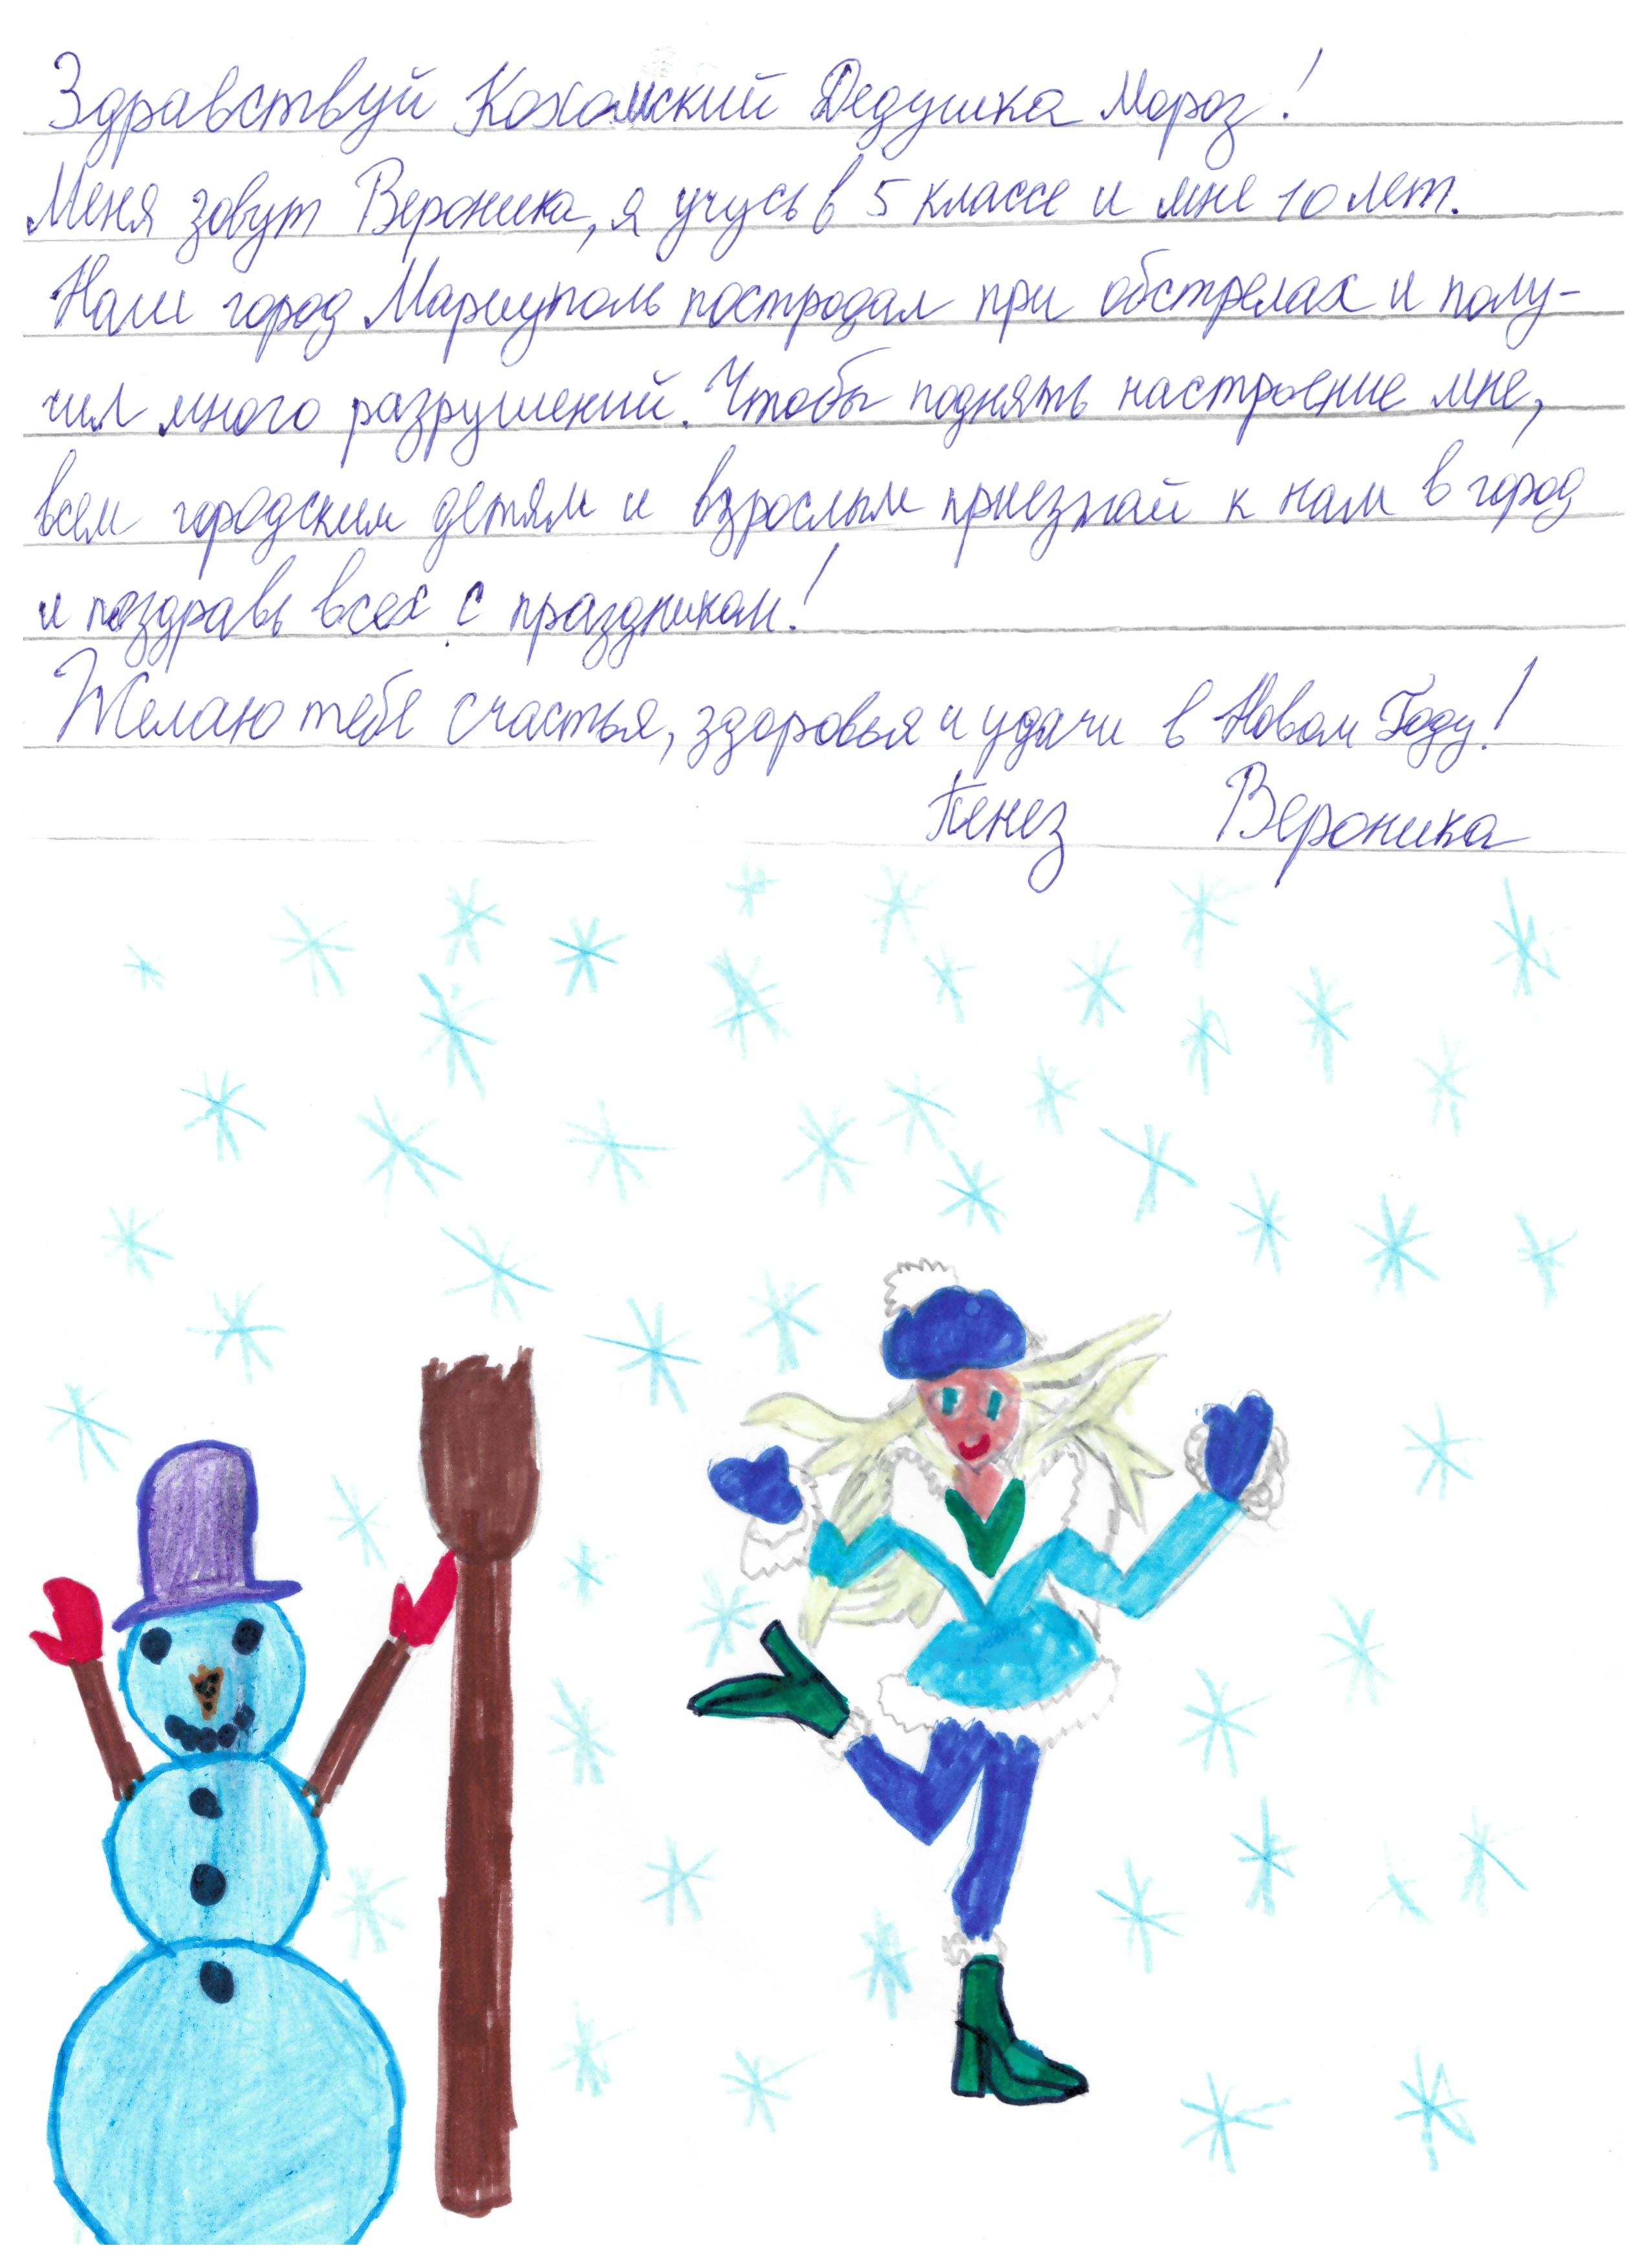 Здравствуй Кохомский Дедушка Мороз!
Меня зовут Вероника, я учусь в 5 классе и мне 10 лет.
Наш город Мариуполь постродал при обстрелах и полу-
чил много разрушений. Чтобы поднять настроение мне,
всем городским детям и взрослым приезжай к нам в город
и поздравь всех с праздником!
Желаю тебе счастья, здоровья и удачи в Новом Году!
Пенез Вероника